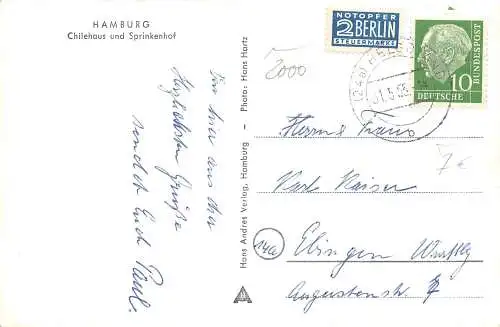 HAMBURG
Chilehaus und Sprinkenhof
Von hier aus die
Herzlichsten Grüße
sendet Euch Paul.
Hans Andres Verlag, Hamburg — Photo: Hans Hartz
2000
NOTOPFER
2 BERLIN
STEUERMARKE
(24a) HELGO
31.5.58
10
DEUTSCHE BUNDESPOST
Herrn u. Frau
Karl Kaiser
7 €
14a
Ebingen Württbg
Augustenstr. 7
A